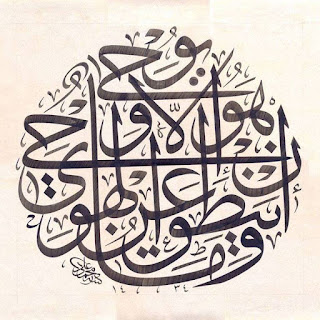 وما ينطق عن الهوى
إن هو إلا وحي يوحى
١٤٣٤